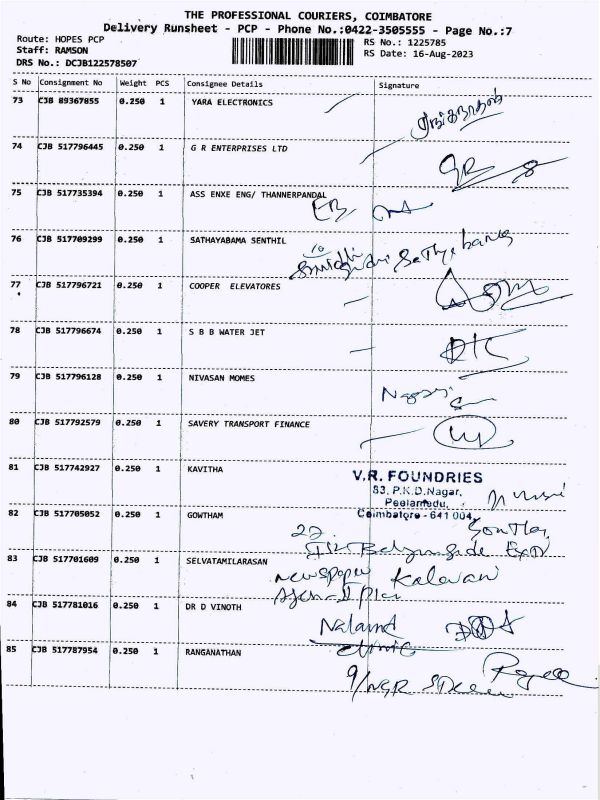 THE PROFESSIONAL COURIERS, COIMBATORE
Delivery Runsheet - PCP - Phone No.:0422-3505555 - Page No.:7
Route: HOPES PCP
RS No.: 1225785
Staff: RAMSON
RS Date: 16-Aug-2023
DRS No.: DCJB122578507
S No Consignment No Weight PCS Consignee Details Signature
73 CJB 89367855 0.250 1 YARA ELECTRONICS
74 CJB 517796445 0.250 1 G R ENTERPRISES LTD GR
75 CJB 517735394 0.250 1 ASS ENXE ENG/ THANNERPANDAL
EB
76 CJB 517709299 0.250 1 SATHAYABAMA SENTHIL
77 CJB 517796721 0.250 1 COOPER ELEVATORES
78 CJB 517796674 0.250 1 S B B WATER JET
79 CJB 517796128 0.250 1 NIVASAN MOMES
80 CJB 517792579 0.250 1 SAVERY TRANSPORT FINANCE
81 CJB 517742927 0.250 1 KAVITHA
V.R. FOUNDRIES
83, P.K.D.Nagar,
Peelamedu,
Coimbatore - 641 004
82 CJB 517705052 0.250 1 GOWTHAM
22
83 CJB 517701609 0.250 1 SELVATAMILARASAN
newspaper Kalavan
84 CJB 517781016 0.250 1 DR D VINOTH
Clinic
85 CJB 517787954 0.250 1 RANGANATHAN